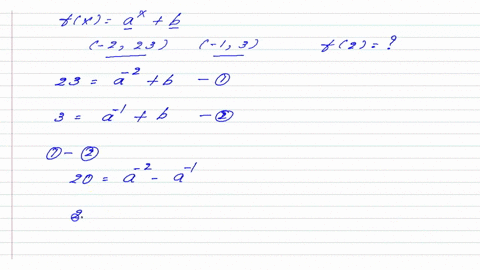 f(x) = a^x + b
(-2, 23) (-1, 3) f(2) = ?
23 = a^-2 + b - ①
3 = a^-1 + b - ②
① - ②
20 = a^-2 - a^-1